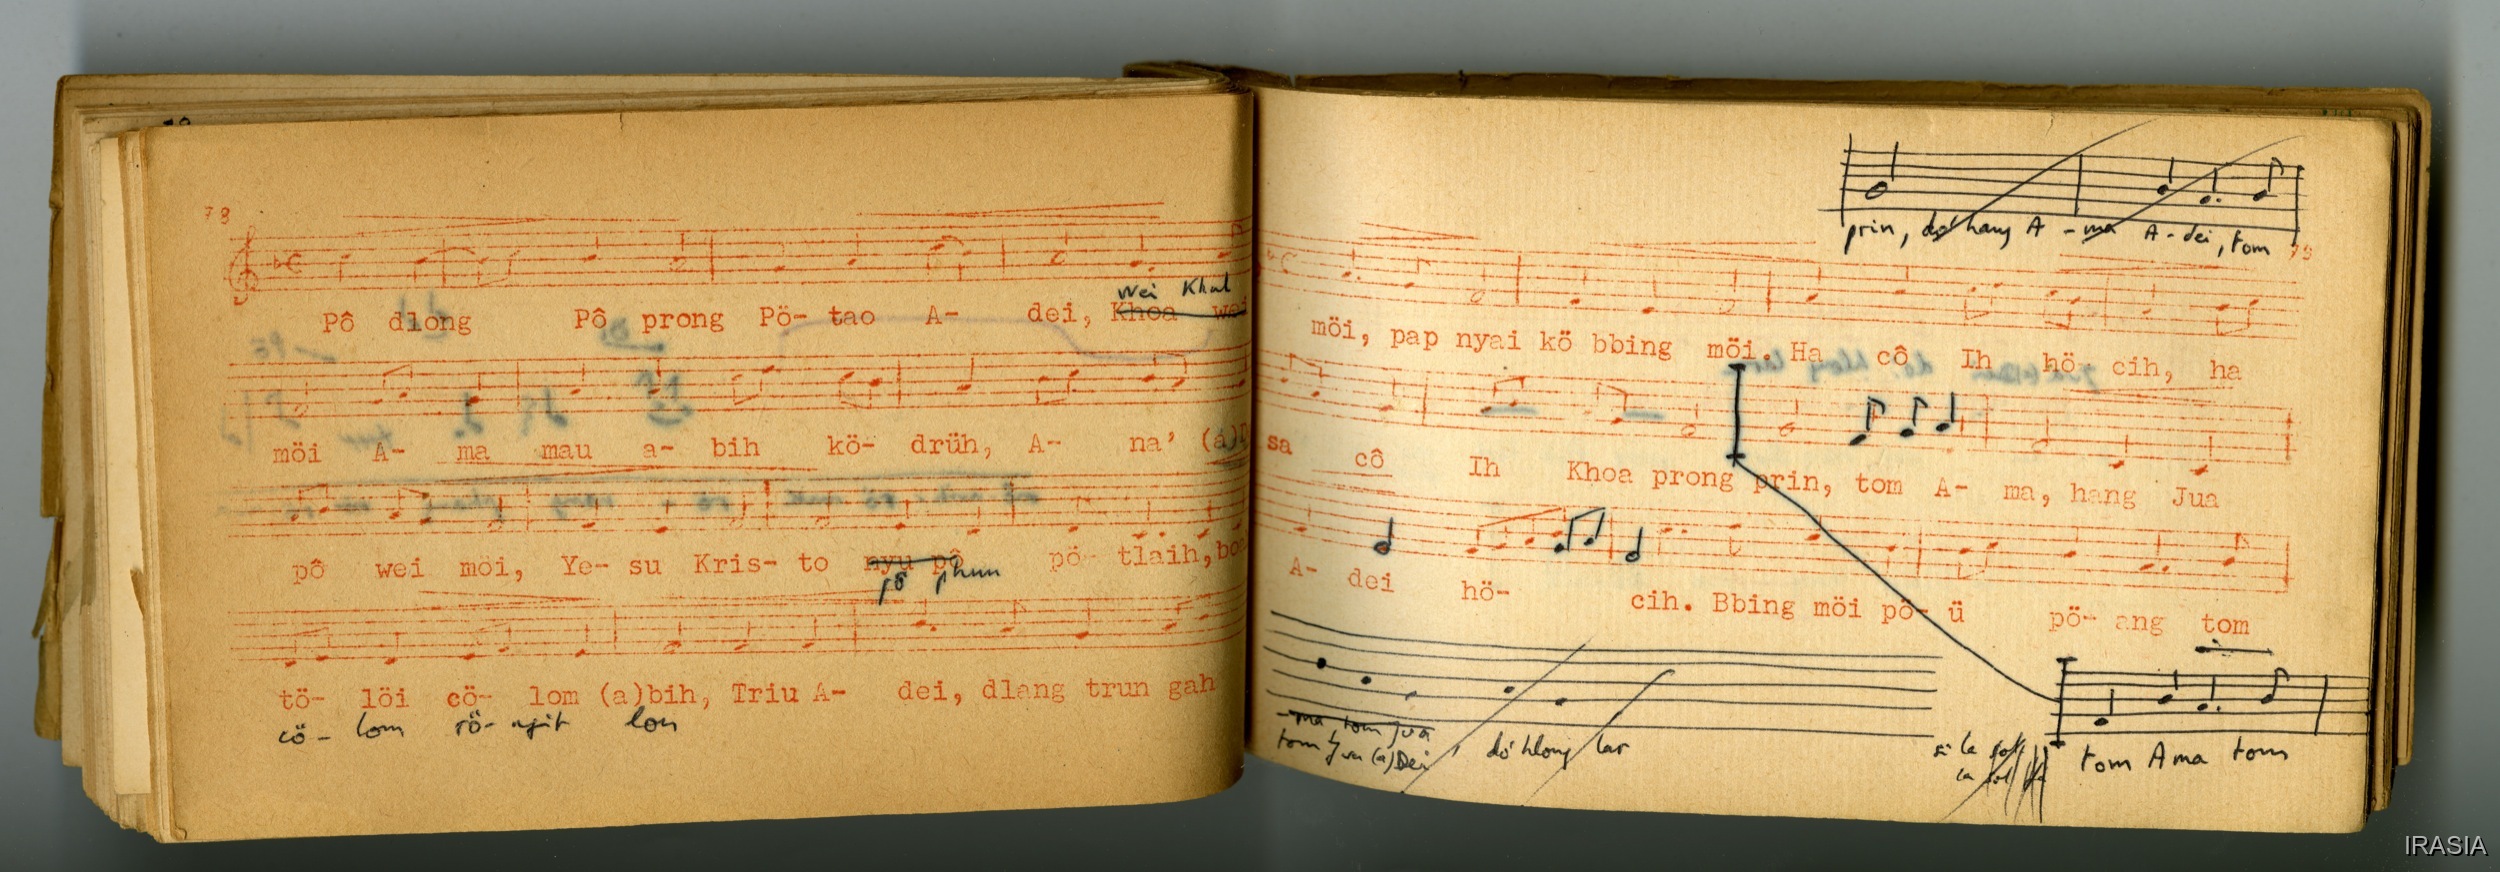 78
Pô dlong Pô prong Pö- tao A- dei, Khoa wei
wei Khul
möi A- ma mau a- bih kö- drüh, A- na' (a)D
pô wei möi, Ye- su Kris- to nyu pô pö- tlaih, boh
pô phun
tö- löi cö- lom (a)bih, Triu A- dei, dlang trun gah
cö- lom rö- ngit lon
prin, dö hang A -ma A-dei, tom
79
möi, pap nyai kö bbing möi. Ha cô Ih hö cih, ha
sa cô Ih Khoa prong prin, tom A- ma, hang Jua
A- dei hö- cih. Bbing möi pö- ü pö- ang tom
-ma tom Jua
tom Jua (a)Dei, dö hlong lar
si la sol
la sol fa
tom Ama tom
IRASIA